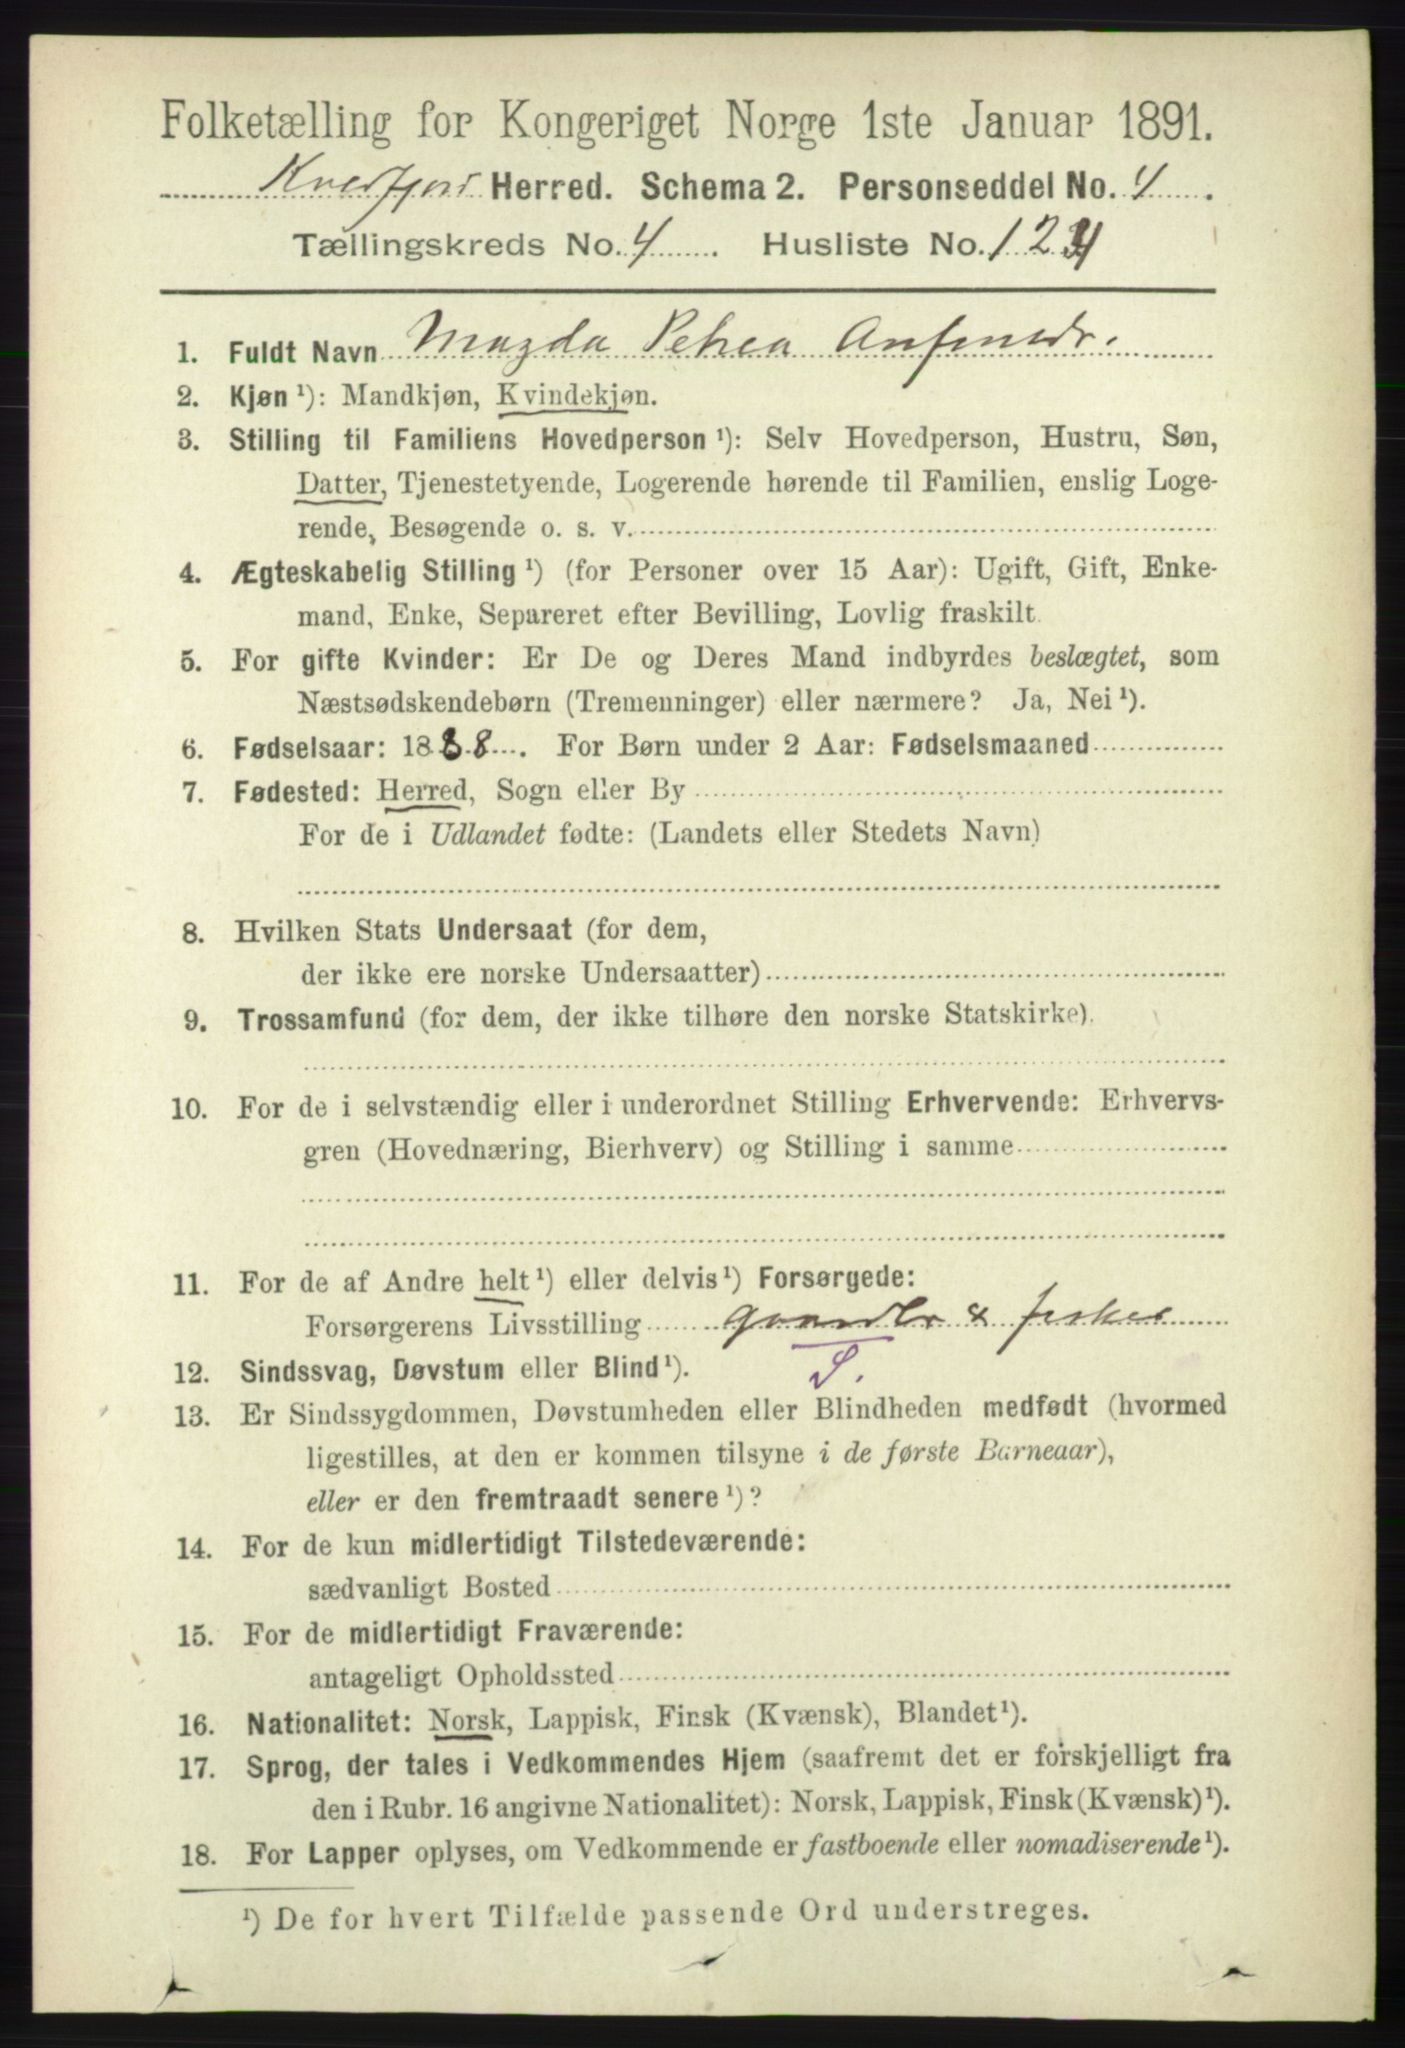 Folketælling for Kongeriget Norge 1ste Januar 1891.
Kvedfjord Herred. Schema 2. Personseddel No. 4.
Tællingskreds No. 4. Husliste No. 124
1. Fuldt Navn Magda Petrea Anfinsdr.
2. Kjøn ¹): Mandkjøn, Kvindekjøn.
3. Stilling til Familiens Hovedperson ¹): Selv Hovedperson, Hustru, Søn,
Datter, Tjenestetyende, Logerende hørende til Familien, enslig Loge-
rende, Besøgende o. s. v.
4. Ægteskabelig Stilling ¹) (for Personer over 15 Aar): Ugift, Gift, Enke-
mand, Enke, Separeret efter Bevilling, Lovlig fraskilt.
5. For gifte Kvinder: Er De og Deres Mand indbyrdes beslægtet, som
Næstsødskendebørn (Tremenninger) eller nærmere? Ja, Nei ¹).
6. Fødselsaar: 1888. For Børn under 2 Aar: Fødselsmaaned
7. Fødested: Herred, Sogn eller By
For de i Udlandet fødte: (Landets eller Stedets Navn)
8. Hvilken Stats Undersaat (for dem,
der ikke ere norske Undersaatter)
9. Trossamfund (for dem, der ikke tilhøre den norske Statskirke).
10. For de i selvstændig eller i underordnet Stilling Erhvervende: Erhvervs-
gren (Hovednæring, Bierhverv) og Stilling i samme
11. For de af Andre helt ¹) eller delvis ¹) Forsørgede:
Forsørgerens Livsstilling gaardbr & fisker
S.
12. Sindssvag, Døvstum eller Blind ¹).
13. Er Sindssygdommen, Døvstumheden eller Blindheden medfødt (hvormed
ligestilles, at den er kommen tilsyne i de første Barneaar),
eller er den fremtraadt senere ¹)?
14. For de kun midlertidigt Tilstedeværende:
sædvanligt Bosted
15. For de midlertidigt Fraværende:
antageligt Opholdssted
16. Nationalitet: Norsk, Lappisk, Finsk (Kvænsk), Blandet ¹).
17. Sprog, der tales i Vedkommendes Hjem (saafremt det er forskjelligt fra
den i Rubr. 16 angivne Nationalitet): Norsk, Lappisk, Finsk (Kvænsk) ¹).
18. For Lapper oplyses, om Vedkommende er fastboende eller nomadiserende ¹).
¹) De for hvert Tilfælde passende Ord understreges.